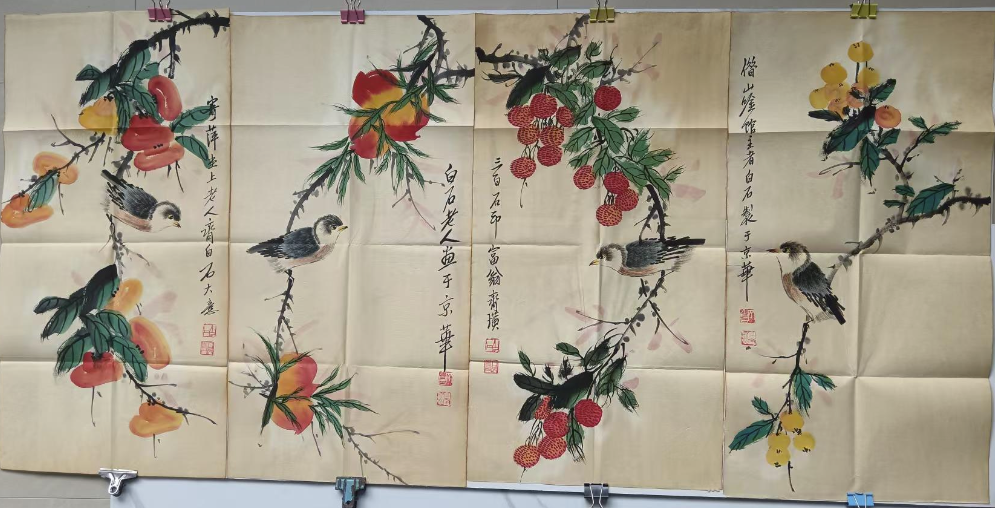 寄萍堂上老人齊白石大意
白石老人画于京華
三百石印富翁齊璜
借山唫馆主者白石製于京華